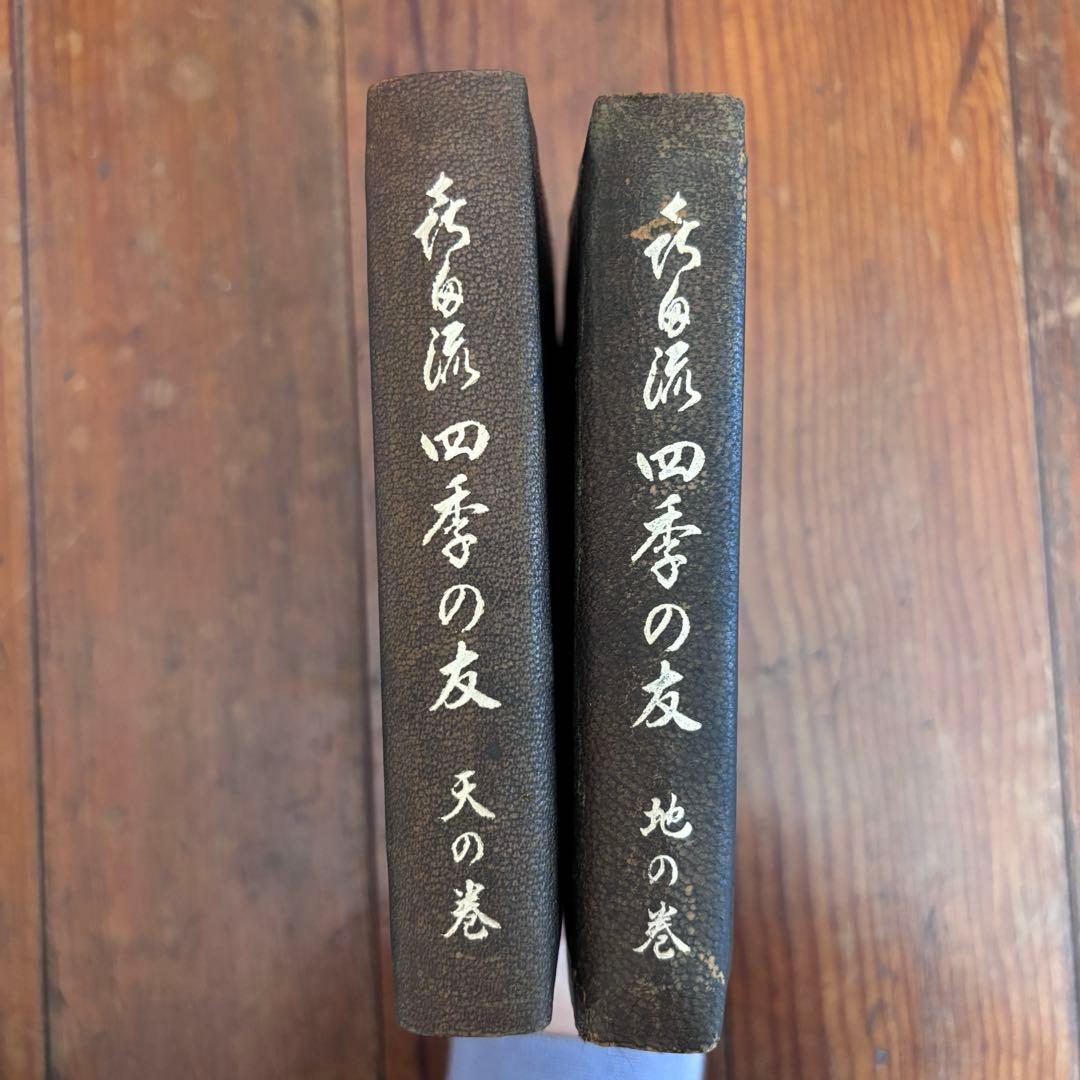 喜多流 四季の友 天の巻
喜多流 四季の友 地の巻